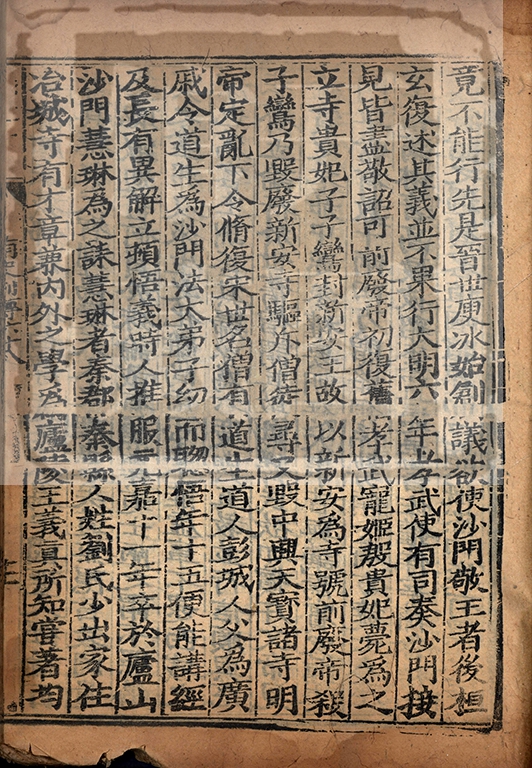 竟不能行先是晉世庾冰始創議欲使沙門敬王者後桓
玄復述其義並不果行大明六年孝武使有司奏沙門接
見皆盡敬詔可前廢帝初復舊孝武寵姬殷貴妃薨為之
立寺貴妃子子鸞封新安王故以新安為寺號前廢帝殺
子鸞乃毀廢新安寺驅斥僧徒尋又毀中興天寶諸寺明
帝定亂下令脩復宋世名僧有道生道人彭城人父為廣
戚令道生為沙門法大弟子幼而聰悟年十五便能講經
及長有異解立頓悟義時人推服元嘉十一年卒於廬山
沙門慧琳為之誄慧琳者秦郡秦縣人姓劉氏少出家住
冶城寺有才章兼內外之學為廬陵王義真所知嘗著均